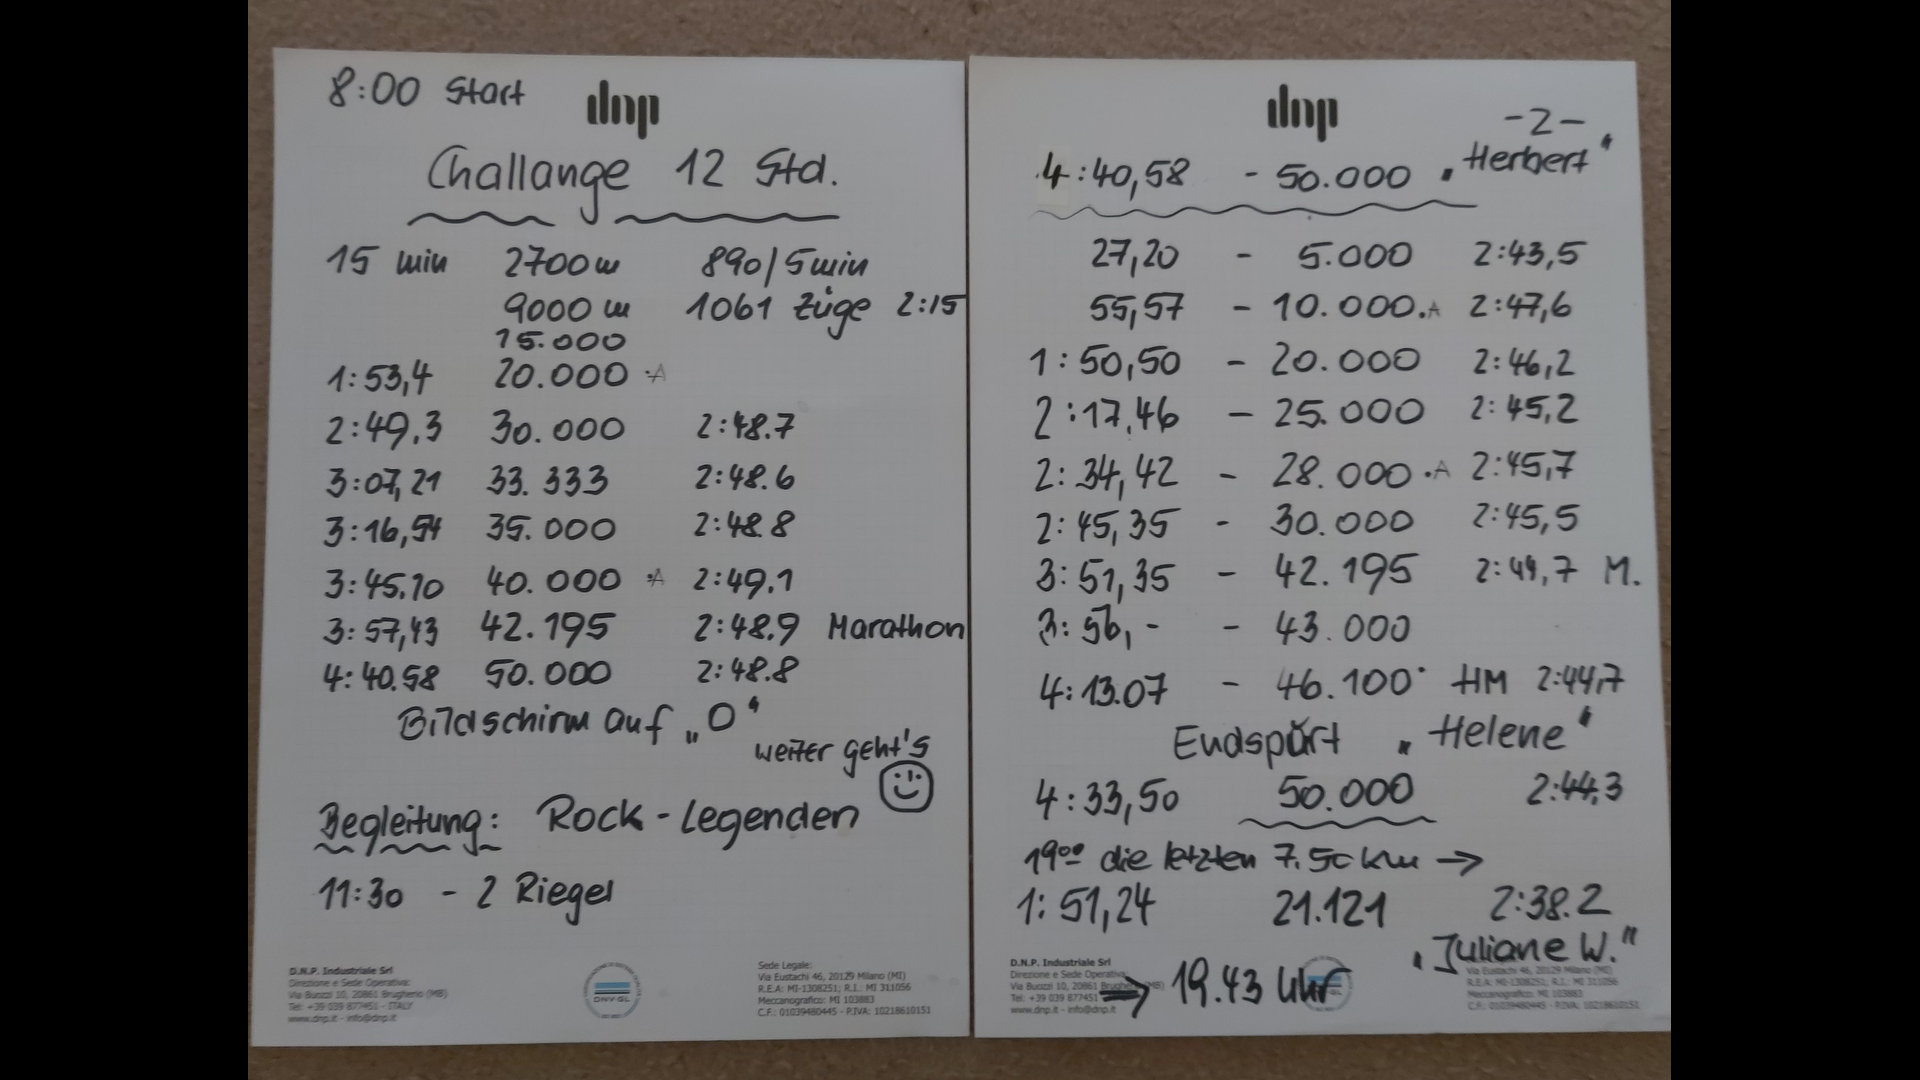 8:00 Start
dnp
Challange 12 Std.
15 min 2700m 890/5min
9000 m 1061 Züge 2:15
15.000
1:53,4 20.000 .A
2:49,3 30.000 2:48.7
3:07,21 33.333 2:48.6
3:16,54 35.000 2:48.8
3:45.10 40.000 .A 2:49.1
3:57,43 42.195 2:48.9 Marathon
4:40.58 50.000 2:48.8
Bildschirm auf „0“
weiter geht's
Begleitung: Rock-Legenden
11:30 - 2 Riegel
D.N.P. Industriale Srl
Direzione e Sede Operativa:
Via Buozzi 10, 20861 Brugherio (MB)
Tel: +39 039 877451 - ITALY
www.dnp.it - info@dnp.it
DNV·GL
Sede Legale:
Via Eustachi 46, 20129 Milano (MI)
R.E.A: MI-1308251; R.I.: MI 311056
Meccanografico: MI 103883
C.F.: 01039480445 - P.IVA: 10218610151
dnp
-2-
4:40,58 - 50.000 „Herbert“
27,20 - 5.000 2:43,5
55,57 - 10.000 .A 2:47,6
1:50,50 - 20.000 2:46,2
2:17,46 - 25.000 2:45,2
2:34,42 - 28.000 .A 2:45,7
2:45,35 - 30.000 2:45,5
3:51,35 - 42.195 2:44,7 M.
3:56,- - 43.000
4:13.07 - 46.100 HM 2:44,7
Endspurt „Helene“
4:33,50 50.000 2:44,3
19⁰⁰ die letzten 7.50 km →
1:51,24 21.121 2:38.2
„Juliane W.“
→ 19.43 Uhr
D.N.P. Industriale Srl
Direzione e Sede Operativa:
Via Buozzi 10, 20861 (MB)
Tel: +39 039 877451
www.dnp.it - info@dnp.it
Via Eustachi 46, 20129 Milano (MI)
R.E.A: MI-1308251; R.I.: MI 311056
Meccanografico: MI 103883
C.F.: 01039480445 - P.IVA: 10218610151